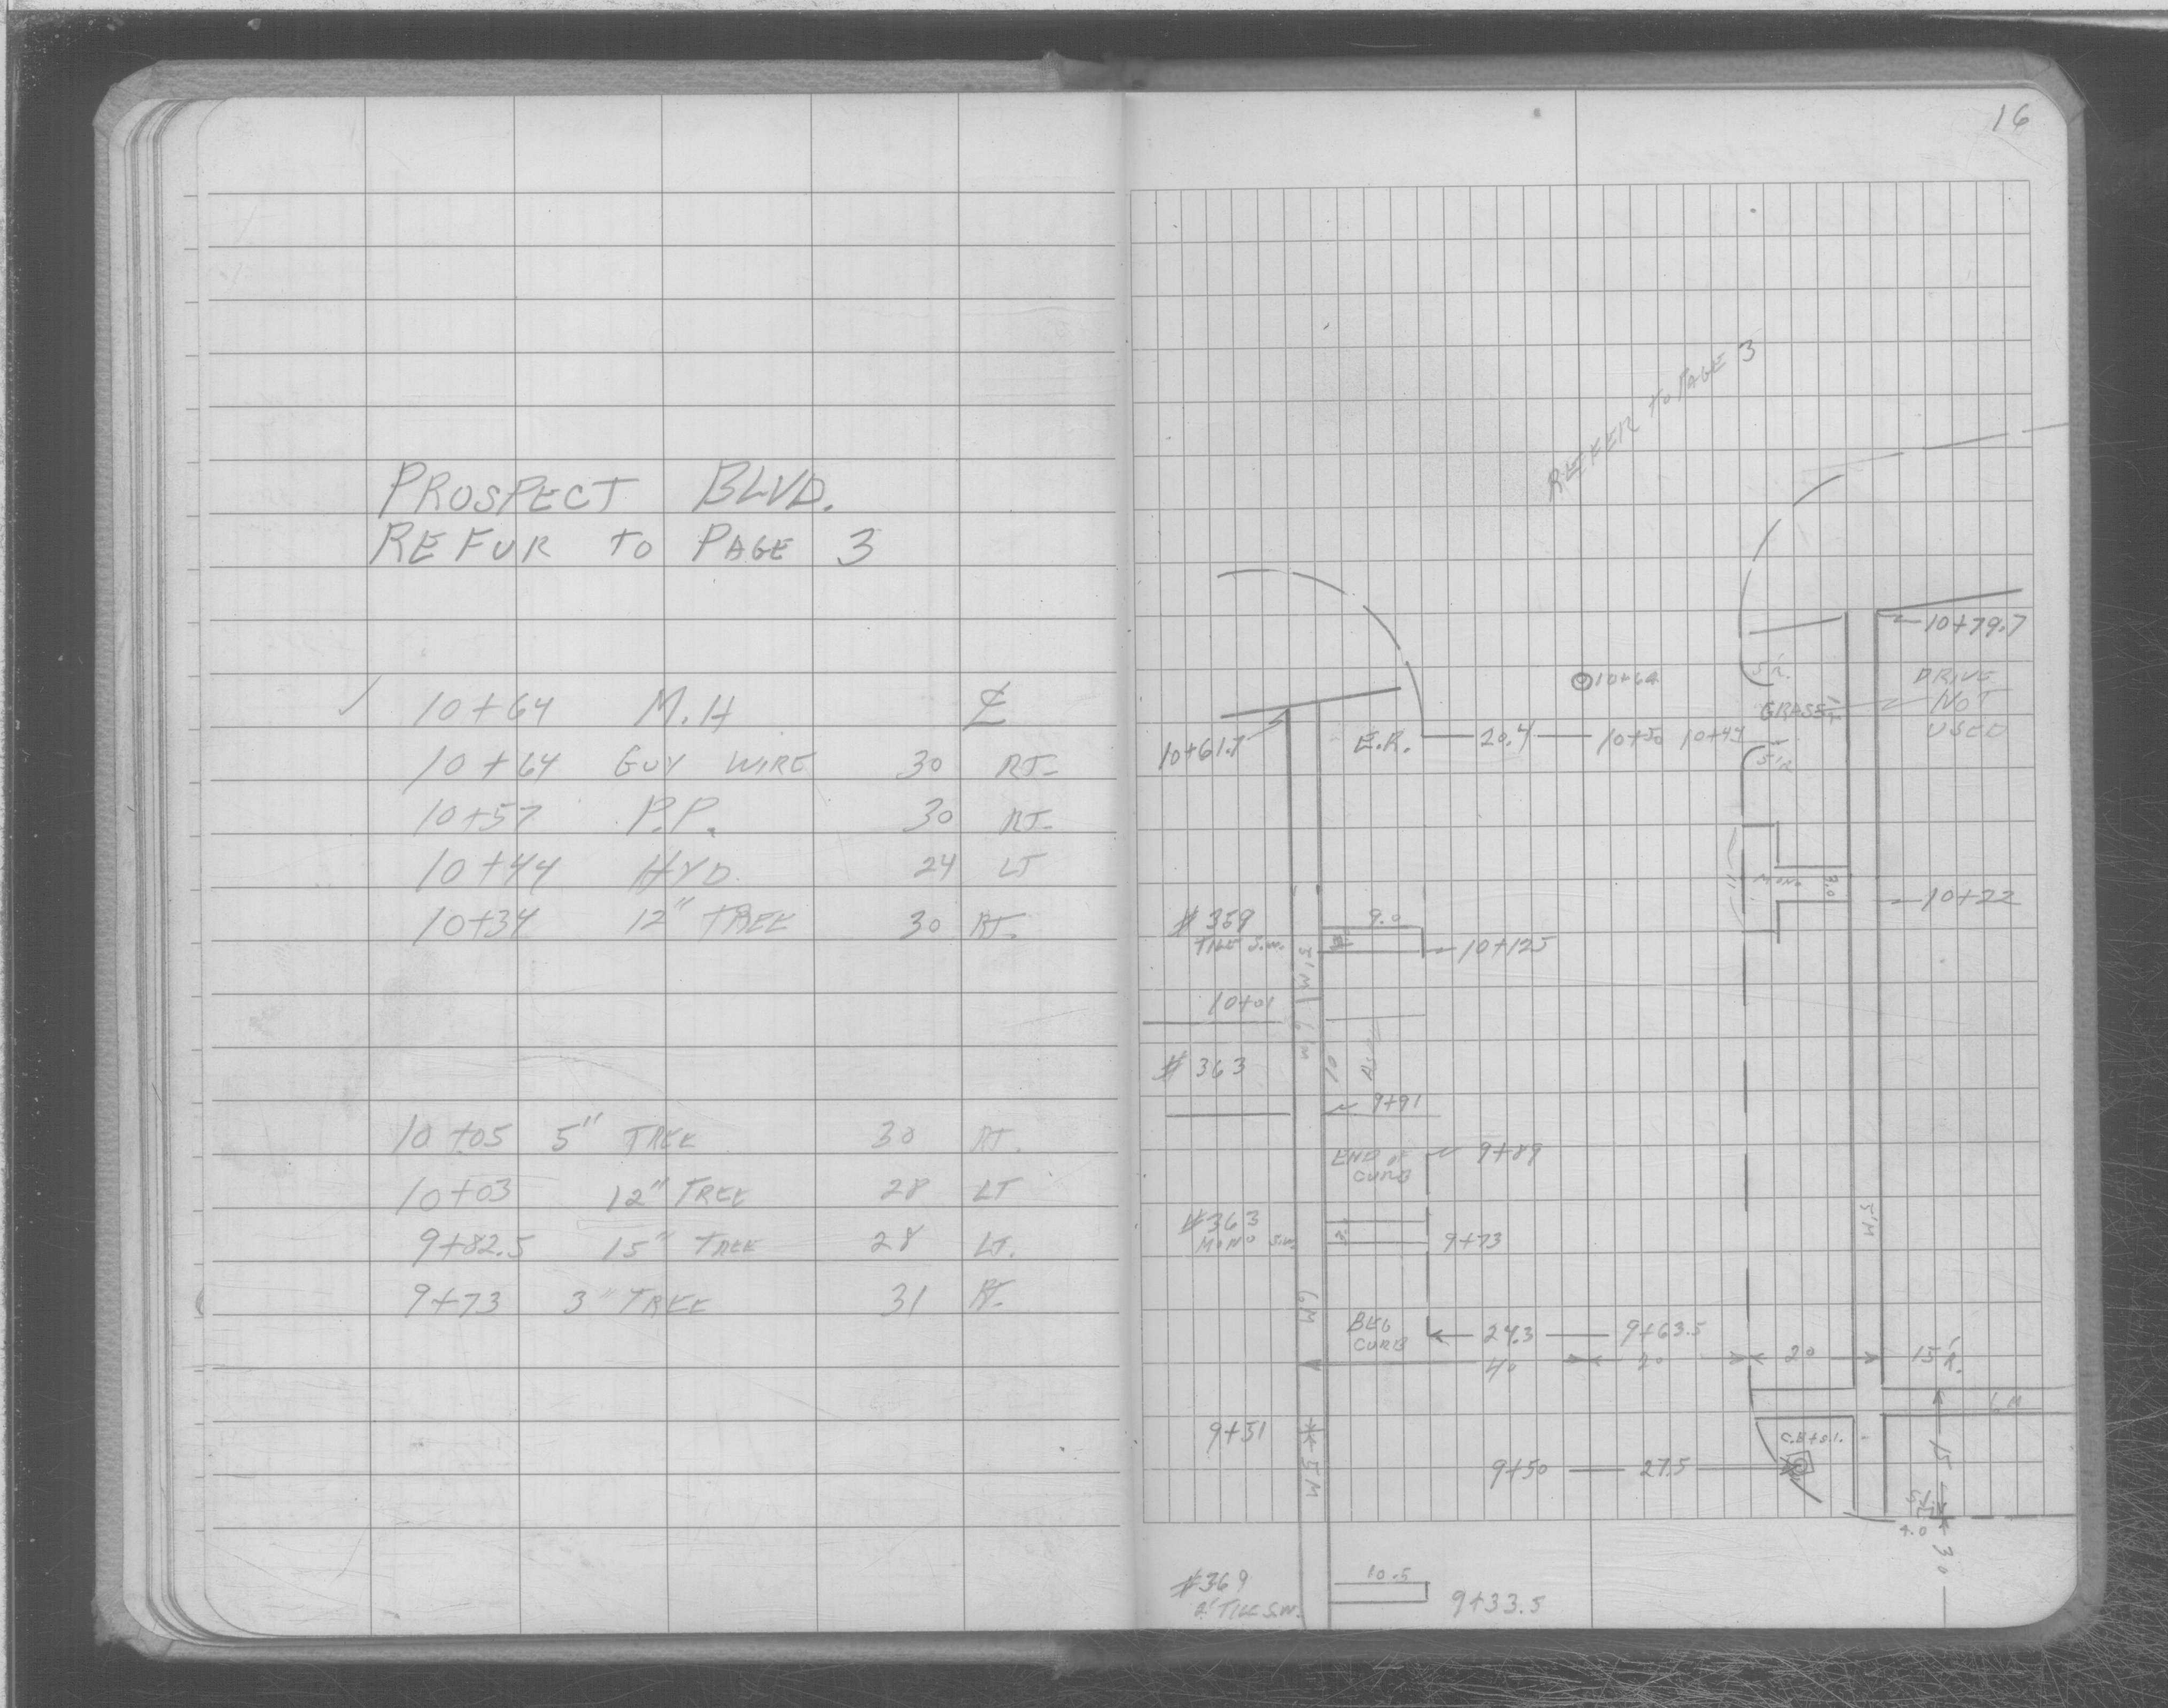 PROSPECT BLVD.
REFUR TO PAGE 3
10+64 M.H ℄
10+64 GUY WIRE 30 RT.
10+57 P.P. 30 RT.
10+44 HYD. 24 LT
10+34 12" TREE 30 RT.
10+05 5" TREE 30 RT.
10+03 12" TREE 28 LT
9+82.5 15" TREE 28 LT.
9+73 3" TREE 31 RT.
16
REFER TO PAGE 3
10+79.7
5'R.
DRIVE
NOT
USED
10+64
GRASS
10+61.7
E.R. 20.4 10+50 10+44
5'R
11
MONO 3.0
10+22
#359
TILE S.W.
9.0
10+12.5
5'M
10+01
6'M
#363
10
9+91
END OF
CURB
9+89
#363
MONO S.W.
9+73
5'M
6M
BEG
CURB
24.3 9+63.5
40 20 20 15'R.
9+51
5M
C.B+S.I.
9+50 27.5
15
4.0
30
#369
2' TILE S.W.
10.5
9+33.5